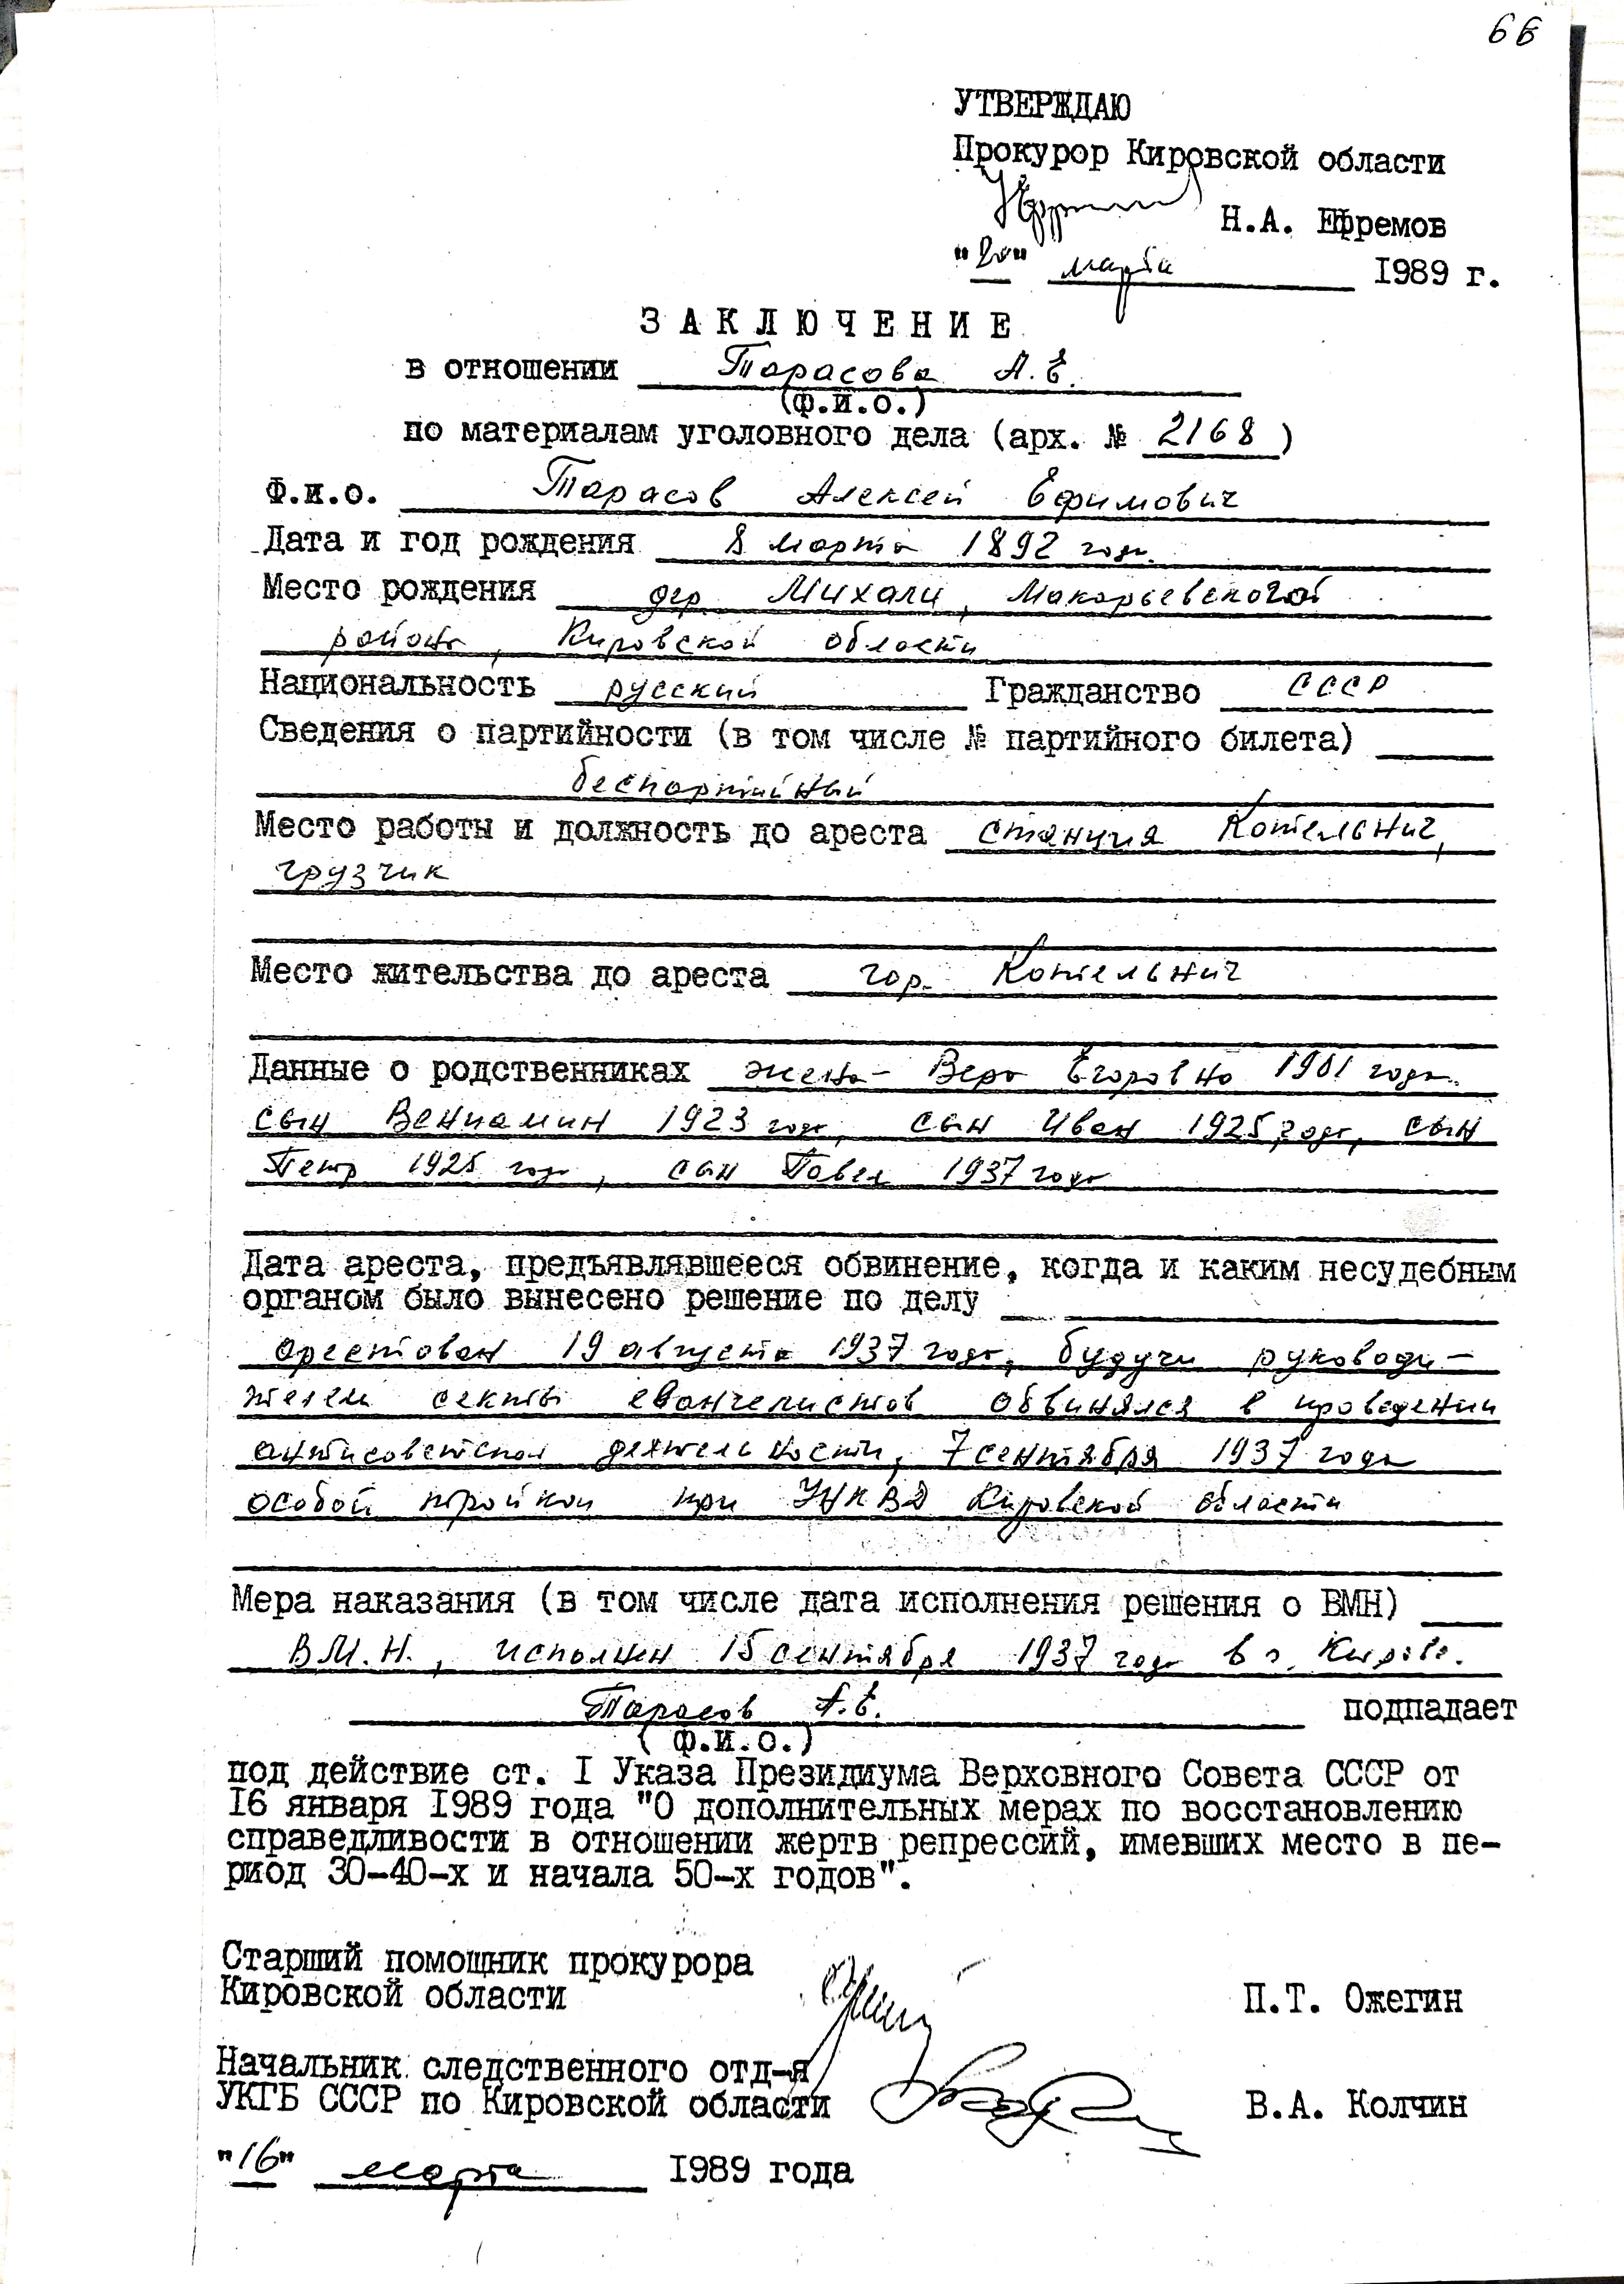 66
УТВЕРЖДАЮ
Прокурор Кировской области
Н.А. Ефремов
"20" марта 1989 г.
ЗАКЛЮЧЕНИЕ
в отношении Тарасова А.Е.
(Ф.И.О.)
по материалам уголовного дела (арх. № 2168)
Ф.И.О. Тарасов Алексей Ефимович
Дата и год рождения 8 марта 1892 года.
Место рождения дер. Михали, Макарьевского
района, Кировской области
Национальность русский Гражданство СССР
Сведения о партийности (в том числе № партийного билета)
беспартийный
Место работы и должность до ареста станция Котельнич,
грузчик
Место жительства до ареста гор. Котельнич
Данные о родственниках жена - Вера Егоровна 1901 года.
сын Вениамин 1923 года, сын Иван 1925 года, сын
Петр 1925 года, сын Павел 1937 года
Дата ареста, предъявлявшееся обвинение, когда и каким несудебным
органом было вынесено решение по делу
арестован 19 августа 1937 года, будучи руководи-
телем секты евангелистов обвинялся в проведении
антисоветской деятельности, 7 сентября 1937 года
особой тройкой при УНКВД Кировской области
Мера наказания (в том числе дата исполнения решения о ВМН)
В.М.Н., исполнен 15 сентября 1937 года в г. Кирове.
Тарасов А.Е. подпадает
(Ф.И.О.)
под действие ст. I Указа Президиума Верховного Совета СССР от
16 января 1989 года "О дополнительных мерах по восстановлению
справедливости в отношении жертв репрессий, имевших место в пе-
риод 30-40-х и начала 50-х годов".
Старший помощник прокурора
Кировской области П.Т. Ожегин
Начальник следственного отд-я
УКГБ СССР по Кировской области В.А. Колчин
"16" марта 1989 года